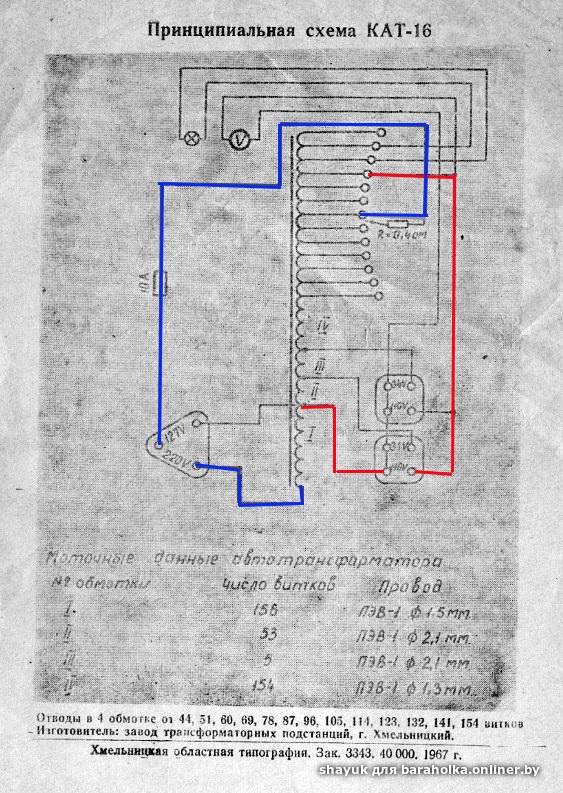 Принципиальная схема КАТ-16
V
10А
R=0,4ом
IV
III
II
I
127V
220V
Моточные данные автотрансформатора
№ обмотки число витков Провод
I 156 ПЭВ-1 ф 1.5мм.
II 53 ПЭВ-1 ф 2,1 мм.
III 5 ПЭВ-1 ф 2,1 мм.
154 ПЭВ-1 ф 1,3мм.
Отводы в 4 обмотке от 44, 51, 60, 69, 78, 87, 96, 105, 114, 123, 132, 141, 154 витков
Изготовитель: завод трансформаторных подстанций, г. Хмельницкий.
Хмельницкая областная типография. Зак. 3343. 40 000. 1967 г.
shayuk для baraholka.onliner.by